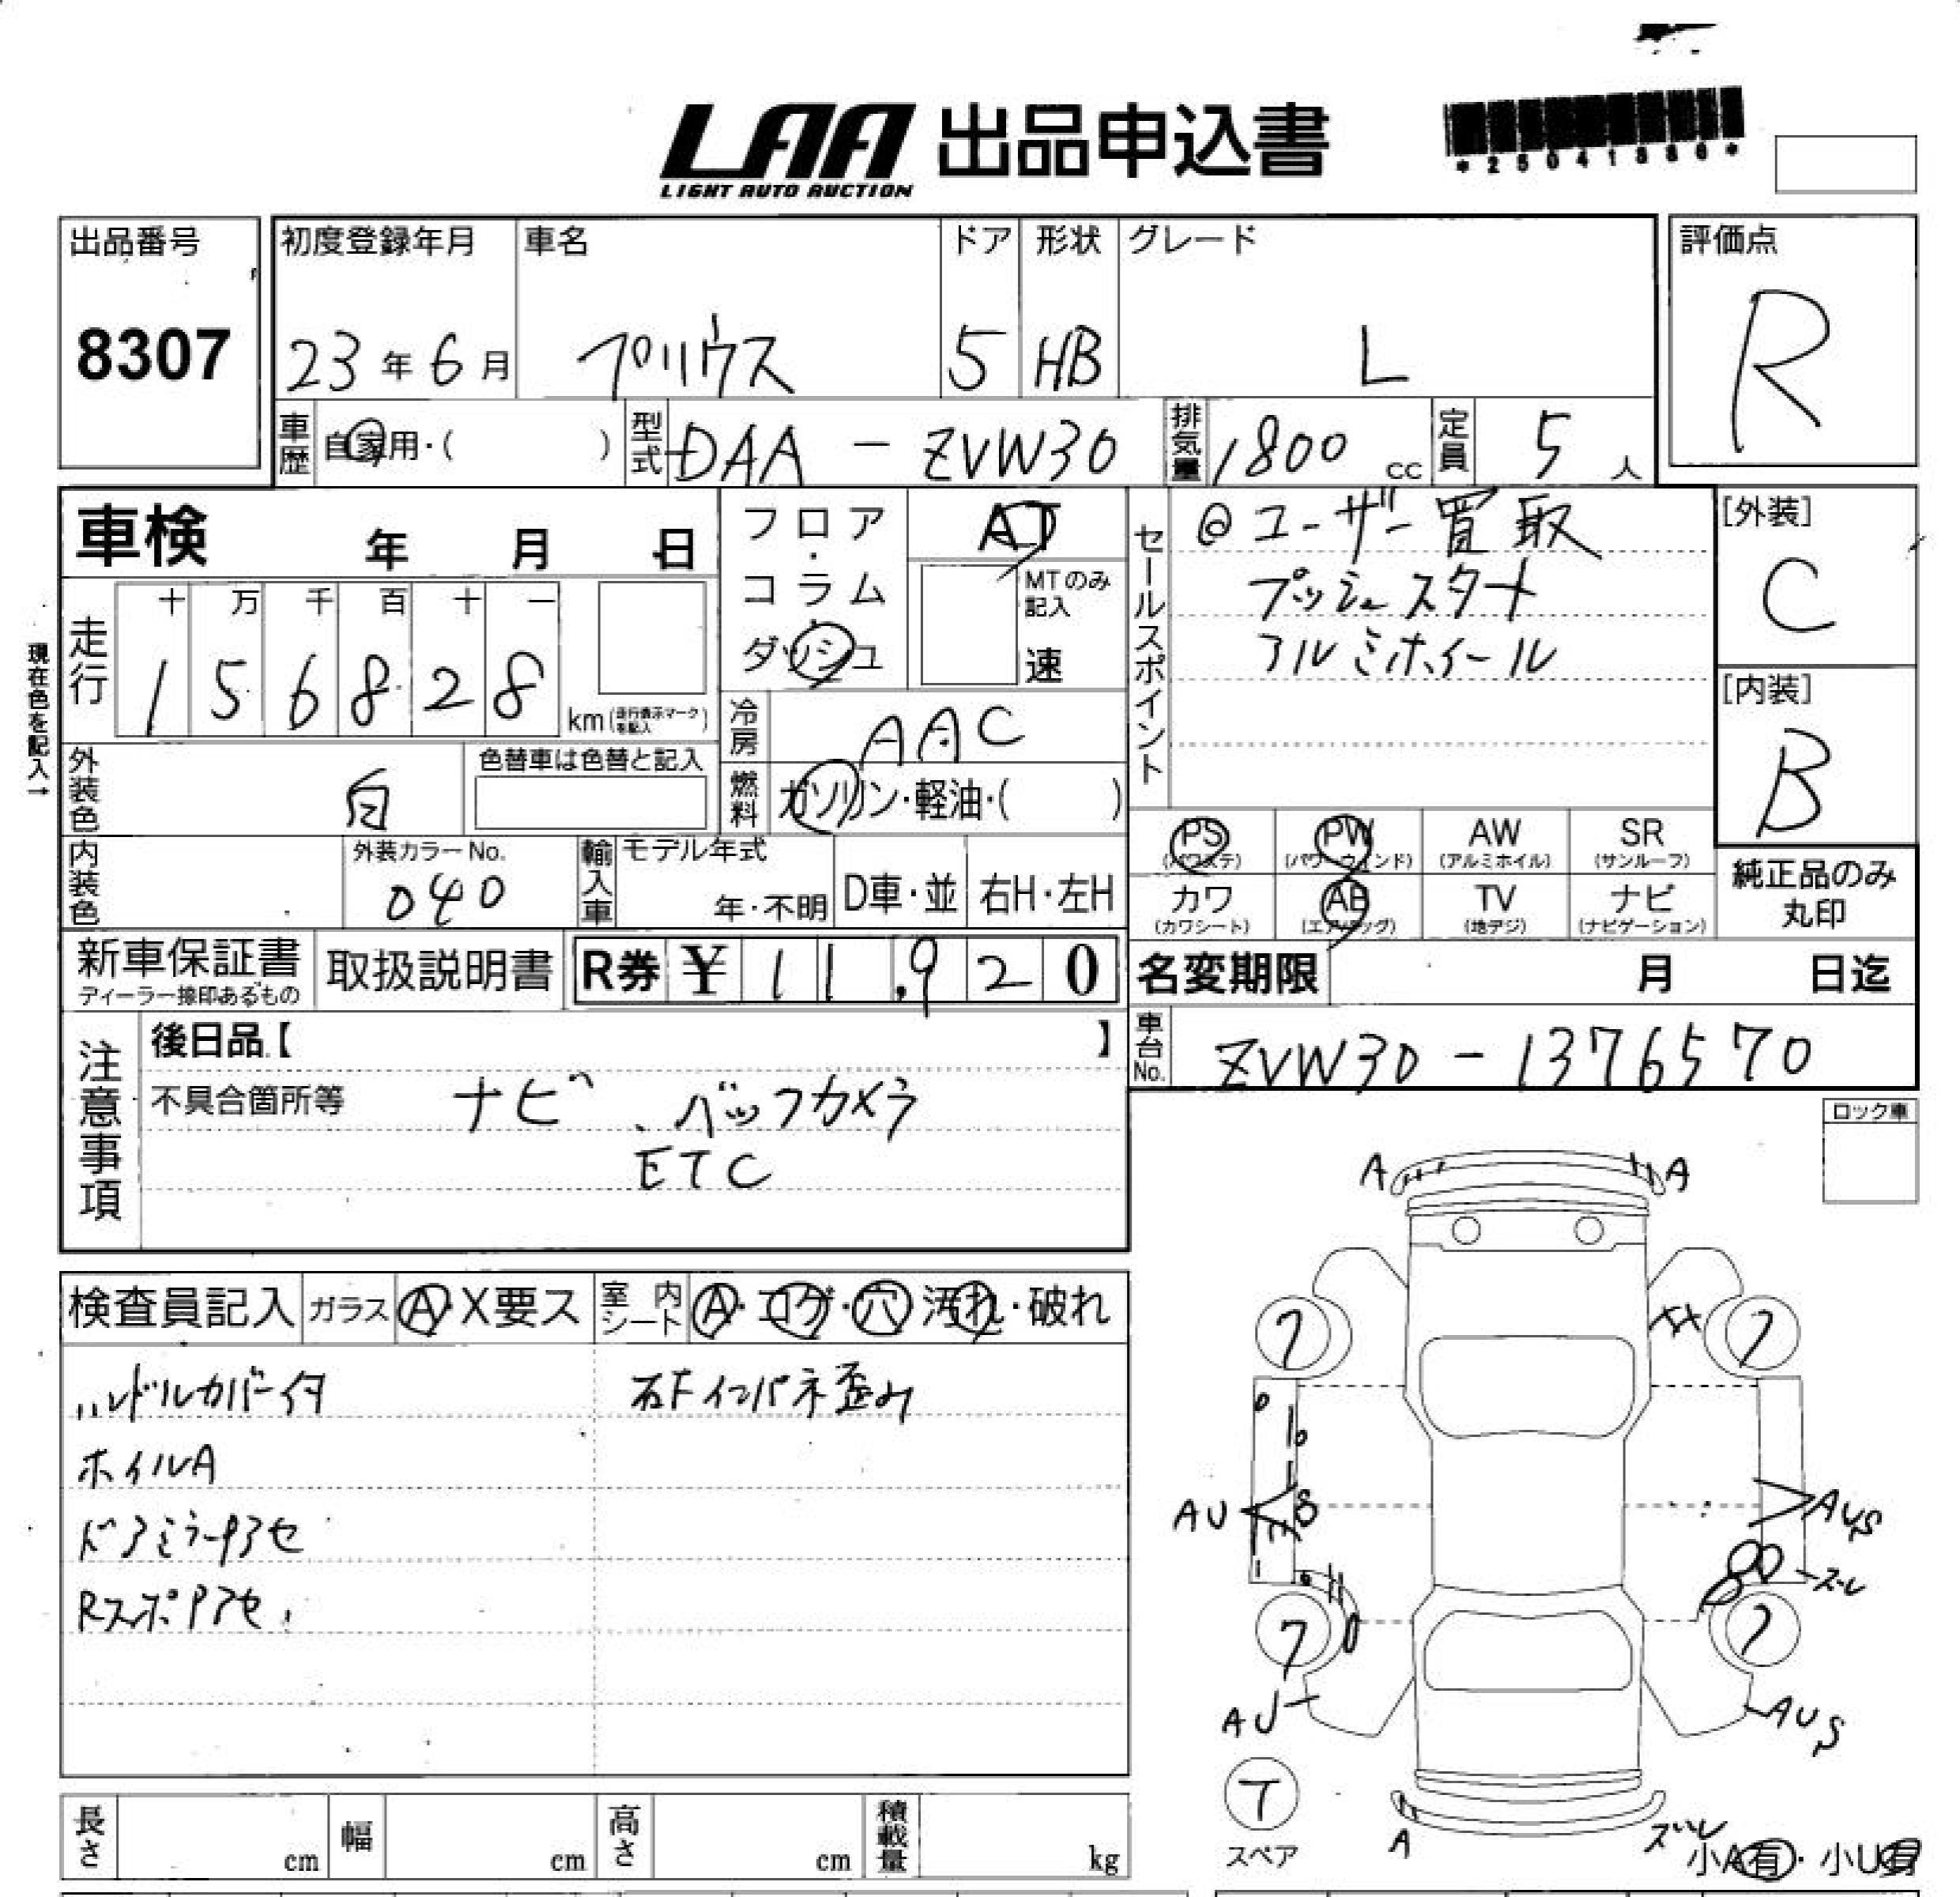 LAA 出品申込書
LIGHT AUTO AUCTION
出品番号
8307
初度登録年月
23年6月
車名
プリウス
ドア
5
形状
HB
グレード
L
評価点
R
車歴
自家用・( )
型式
DAA - ZVW30
排気量
1800 cc
定員
5人
車検 年 月 日
フロア・コラム・ダッシュ
AT
MTのみ記入
速
セールスポイント
@ユーザー買取
プッシュスタート
アルミホイール
[外装]
C
[内装]
B
現在色を記入→
走行
十 万 千 百 十 一
1 5 6 8 2 8
km(走行表示マークを記入)
冷房
AAC
外装色
白
色替車は色替と記入
燃料
ガソリン・軽油・( )
内装色
外装カラーNo.
040
輸入車
モデル年式
年・不明
D車・並
右H・左H
PS
(パワステ)
PW
(パワーウィンド)
AW
(アルミホイル)
SR
(サンルーフ)
カワ
(カワシート)
AB
(エアバッグ)
TV
(地デジ)
ナビ
(ナビゲーション)
純正品のみ
丸印
新車保証書
ディーラー捺印あるもの
取扱説明書
R券 ¥11,920
名変期限 月 日迄
車台No.
ZVW30-1376570
注意事項
後日品【 】
不具合箇所等
ナビ、バックカメラ
ETC
ロック車
検査員記入
ガラス
A・X要ス
室内シート
A・コゲ・穴・汚れ・破れ
ハンドルカバー付
右Fインパネ歪み
ホイルA
ドアミラーPアセ
RスポPアセ
A
A
XX
7
7
AU
S
AUS
ズレ
7
7
AU
AUS
T
スペア
A
ズレ
小A有・小U有
長さ
cm
幅
cm
高さ
cm
積載量
kg